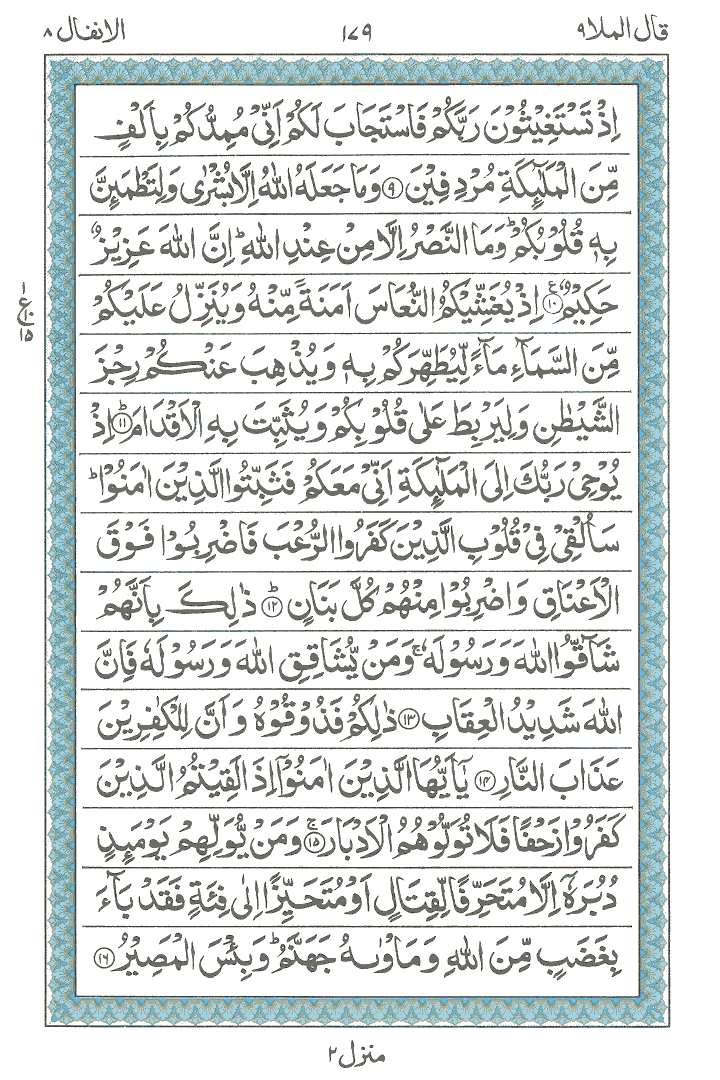 قال الملا ٩ ١٧٩ الانفال ٨
اِذْ تَسْتَغِيْثُوْنَ رَبَّكُمْ فَاسْتَجَابَ لَكُمْ اَنِّىْ مُمِدُّكُمْ بِاَلْفٍ
مِّنَ الْمَلٰٓئِكَةِ مُرْدِفِيْنَ ۹ وَمَا جَعَلَهُ اللّٰهُ اِلَّا بُشْرٰى وَلِتَطْمَئِنَّ
بِهٖ قُلُوْبُكُمْ ؕ وَمَا النَّصْرُ اِلَّا مِنْ عِنْدِ اللّٰهِ ؕ اِنَّ اللّٰهَ عَزِيْزٌ
حَكِيْمٌ ۱۰ ع اِذْ يُغَشِّيْكُمُ النُّعَاسَ اَمَنَةً مِّنْهُ وَيُنَزِّلُ عَلَيْكُمْ
١ ع ١٠ ١٥
مِّنَ السَّمَآءِ مَآءً لِّيُطَهِّرَكُمْ بِهٖ وَيُذْهِبَ عَنْكُمْ رِجْزَ
الشَّيْطٰنِ وَلِيَرْبِطَ عَلٰى قُلُوْبِكُمْ وَيُثَبِّتَ بِهِ الْاَقْدَامَ ؕ ۱۱ اِذْ
يُوْحِىْ رَبُّكَ اِلَى الْمَلٰٓئِكَةِ اَنِّىْ مَعَكُمْ فَثَبِّتُوا الَّذِيْنَ اٰمَنُوْا ؕ
سَاُلْقِىْ فِىْ قُلُوْبِ الَّذِيْنَ كَفَرُوا الرُّعْبَ فَاضْرِبُوْا فَوْقَ
الْاَعْنَاقِ وَاضْرِبُوْا مِنْهُمْ كُلَّ بَنَانٍ ؕ ۱۲ ذٰلِكَ بِاَنَّهُمْ
شَآقُّوا اللّٰهَ وَرَسُوْلَهٗ ۚ وَمَنْ يُّشَاقِقِ اللّٰهَ وَرَسُوْلَهٗ فَاِنَّ
اللّٰهَ شَدِيْدُ الْعِقَابِ ۱۳ ذٰلِكُمْ فَذُوْقُوْهُ وَاَنَّ لِلْكٰفِرِيْنَ
عَذَابَ النَّارِ ۱۴ يٰۤاَيُّهَا الَّذِيْنَ اٰمَنُوْۤا اِذَا لَقِيْتُمُ الَّذِيْنَ
كَفَرُوْا زَحْفًا فَلَا تُوَلُّوْهُمُ الْاَدْبَارَ ۚ ۱۵ وَمَنْ يُّوَلِّهِمْ يَوْمَئِذٍ
دُبُرَهٗۤ اِلَّا مُتَحَرِّفًا لِّقِتَالٍ اَوْ مُتَحَيِّزًا اِلٰى فِئَةٍ فَقَدْ بَآءَ
بِغَضَبٍ مِّنَ اللّٰهِ وَمَاْوٰىهُ جَهَنَّمُ ؕ وَبِئْسَ الْمَصِيْرُ ۱۶
منزل ٢